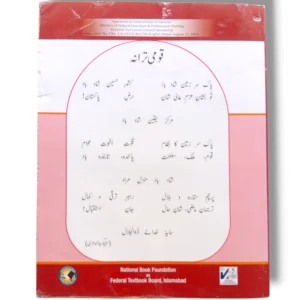 قومی ترانہ
پاک سر زمین شاد باد کشور حسین شاد باد
تو نشان عزم عالی شان ارض پاکستان!
مرکز یقین شاد باد
پاک سر زمین کا نظام قوت اخوت عوام
قوم، ملک، سلطنت پائندہ تابندہ باد
شاد باد منزل مراد
پرچم ستارہ و ہلال رہبر ترقی و کمال
ترجمان ماضی، شان حال جان استقبال!
سایۂ خدائے ذوالجلال
National Book Foundation
as
Federal Textbook Board, Islamabad